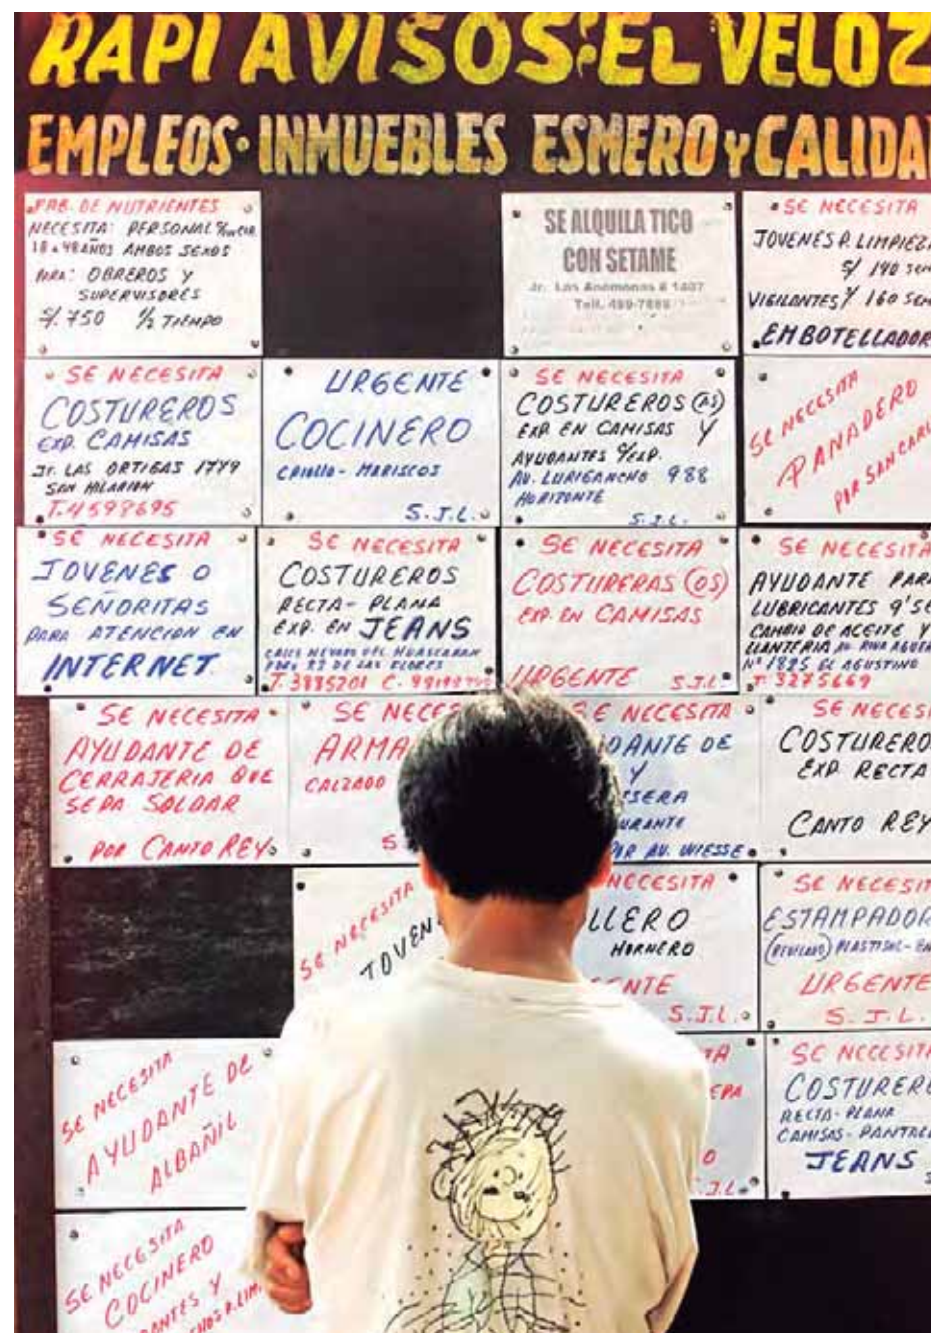 RAPI AVISOS: EL VELOZ
EMPLEOS · INMUEBLES ESMERO Y CALIDA
FAB. DE NUTRIENTES
NECESITA: PERSONAL
18 a 48 AÑOS AMBOS SEXOS
PARA: OBREROS Y
SUPERVISORES
S/. 750 1/2 TIEMPO
SE ALQUILA TICO
CON SETAME
Jr. Las Anémonas # 1407
Telf. 459-7689
SE NECESITA
JOVENES P. LIMPIEZA
S/ 140 SEM
VIGILANTES 160 SEM
EMBOTELLADOR
SE NECESITA
COSTUREROS
EXP. CAMISAS
Jr. LAS ORTIGAS 1779
SAN HILARION
T. 4598695
URGENTE
COCINERO
CRIOLLO - MARISCOS
S.J.L.
SE NECESITA
COSTUREROS (AS)
EXP. EN CAMISAS Y
AYUDANTES C/EXP.
AV. LURIGANCHO 988
HORIZONTE
S.J.L.
SE NECESITA
PANADERO
POR SAN CARL
SE NECESITA
JOVENES O
SEÑORITAS
PARA ATENCION EN
INTERNET.
SE NECESITA
COSTUREROS
RECTA - PLANA
EXP. EN JEANS
CALLE NEVADO DEL HUASCARAN
PDRO 22 DE LAS FLORES
T. 3885201 C.
SE NECESITA
COSTURERAS (OS)
EXP. EN CAMISAS
URGENTE S.J.L.
SE NECESITA
AYUDANTE PARA
LUBRICANTES Q'SE
CAMBIO DE ACEITE Y
LLANTERIA AV. RIVA AGUER
Nº 1825 EL AGUSTINO
T. 3275669
SE NECESITA
AYUDANTE DE
CERRAJERIA QUE
SEPA SOLDAR
POR CANTO REY
SE NECES
ARMA
CALZADO
S.
SE NECESITA
DANTE DE
Y
SERA
URANTE
POR AV. WIESSE
SE NECESI
COSTURERO
EXP. RECTA
CANTO REY
SE NECESITA
JOVEN
NECESITA
LLERO
HORNERO
ENTE
S.J.L.
SE NECESIT
ESTAMPADOR
(REVELADO) PLASTISOL - EN
URGENTE
S.J.L.
SE NECESITA
AYUDANTE DE
ALBAÑIL
TA
EPA
O
S.J.L.
SE NECESITA
COSTURERE
RECTA - PLANA
CAMISAS - PANTAL
JEANS
SE NECESITA
COCINERO
DANTES Y